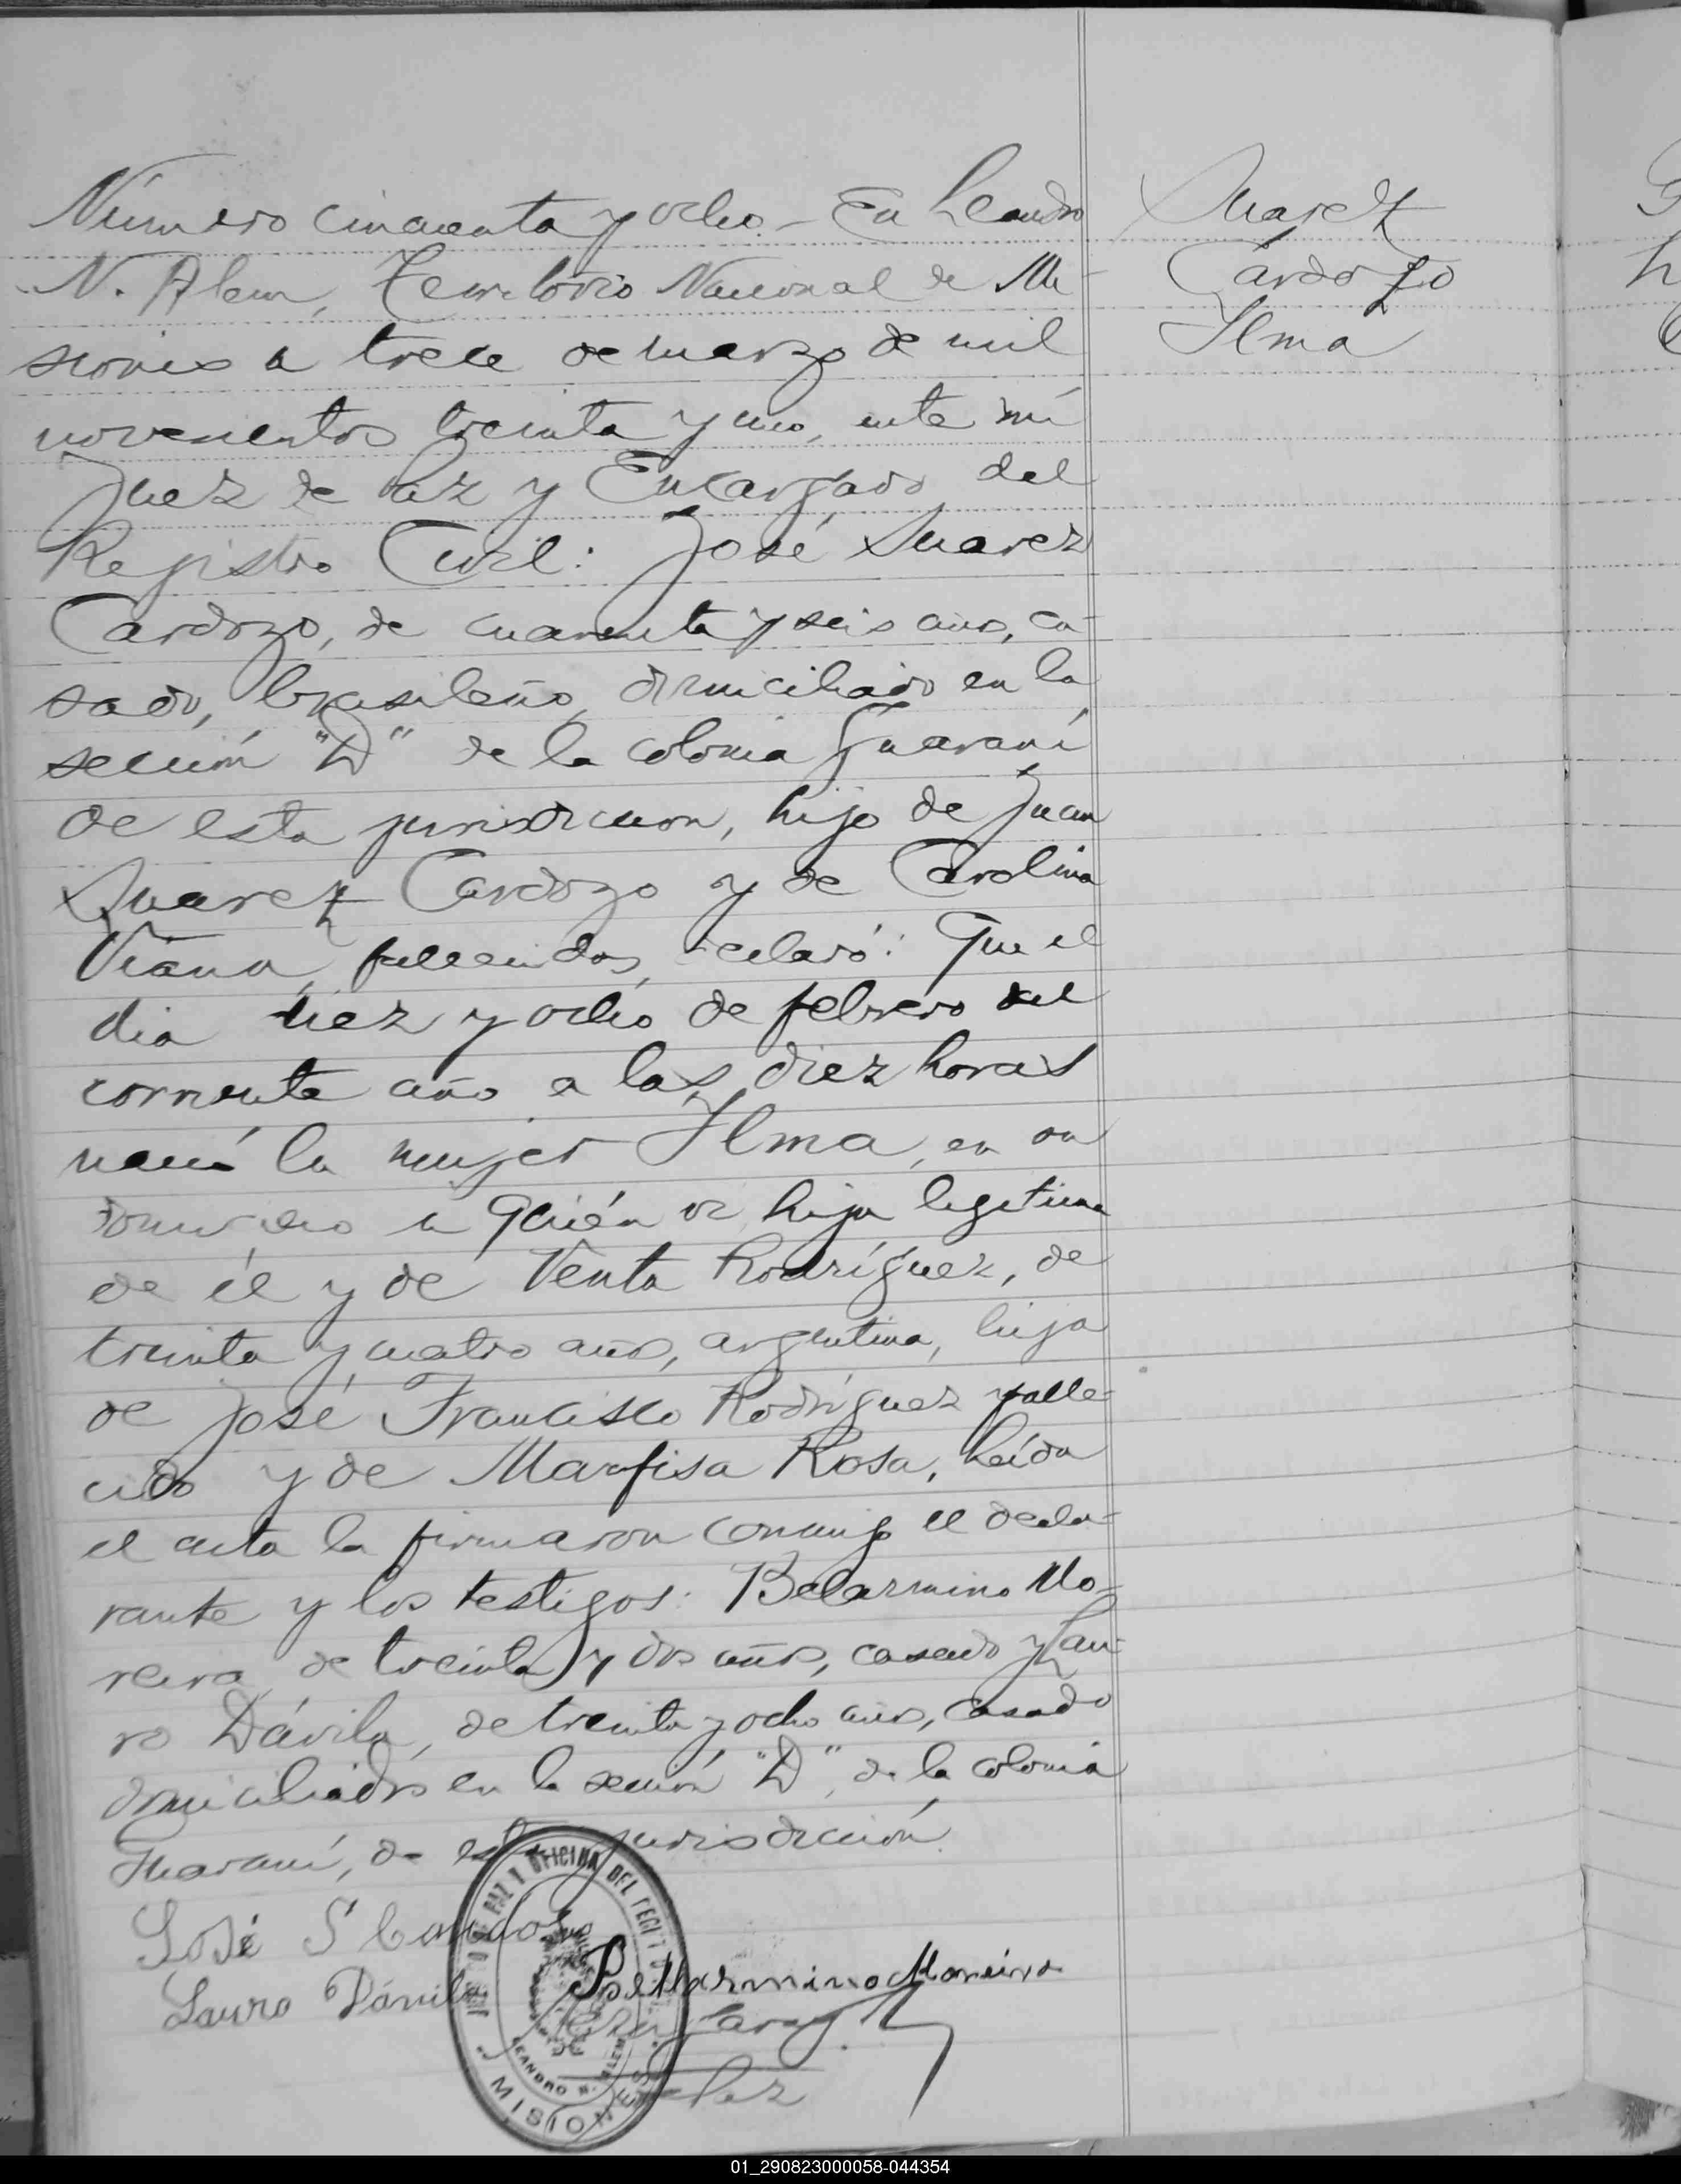 Número cincuenta y ocho.- En Leandro
N. Alem, Territorio Nacional de Mi-
siones a trece de marzo de mil
novecientos treinta y uno, ante mí
Juez de Paz y Encargado del
Registro Civil: José Suarez
Cardozo, de cuarenta y seis años, ca-
sado, brasileño, domiciliado en la
sección "D" de la colonia Guaraní
de esta jurisdiccion, hijo de Juan
Suarez Cardozo y de Carolina
Viana, fallecidos, declaró: Que el
dia diez y ocho de febrero del
corriente año a las diez horas
nació la mujer Ilma, en su
domicilio a quién vi, hija legitima
de él y de Venta Rodríguez, de
treinta y cuatro años, argentina, hija
de José Francisco Rodríguez falle-
cido y de Marfisa Rosa, Leída
el acta la firmaron conmigo el decla-
rante y los testigos: Belarmino Mo-
reira de treinta y dos años, casado y Lau-
ro Dávila, de treinta y ocho años, casado
domiciliados en la sección "D", de la colonia
Guaraní, de esta jurisdicción.
José S Cardoso
Bellarmino Moreira
Lauro Dávila
Juez
OFICINA DEL
LEANDRO N. ALEM
MISIONES
Suarez
Cardozo
Ilma
01_290823000058-044354